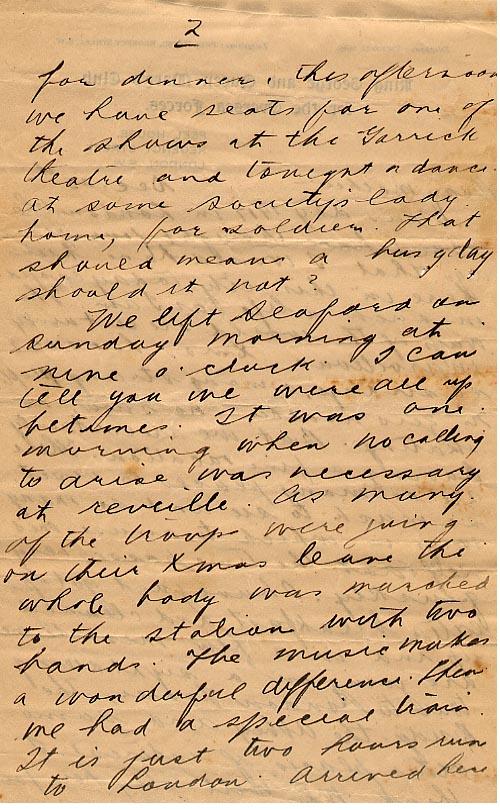 2
for dinner. This afternoon
we have seats for one of
the shows at the Garrick
theatre and tonight a dance
at some society's lady
home, for soldiers. That
should mean a busy day
should it not?
We left Seaford on
Sunday morning at
nine o. cluck. I can
tell you we were all up
betimes. It was one
morning when no calling
to arise was necessary
at reveille. As many
of the troops were going
on their Xmas leave the
whole body was marched
to the station with two
bands. The music makes
a wonderful difference. Then
we had a special train.
It is just two hours run
to London. Arrived here